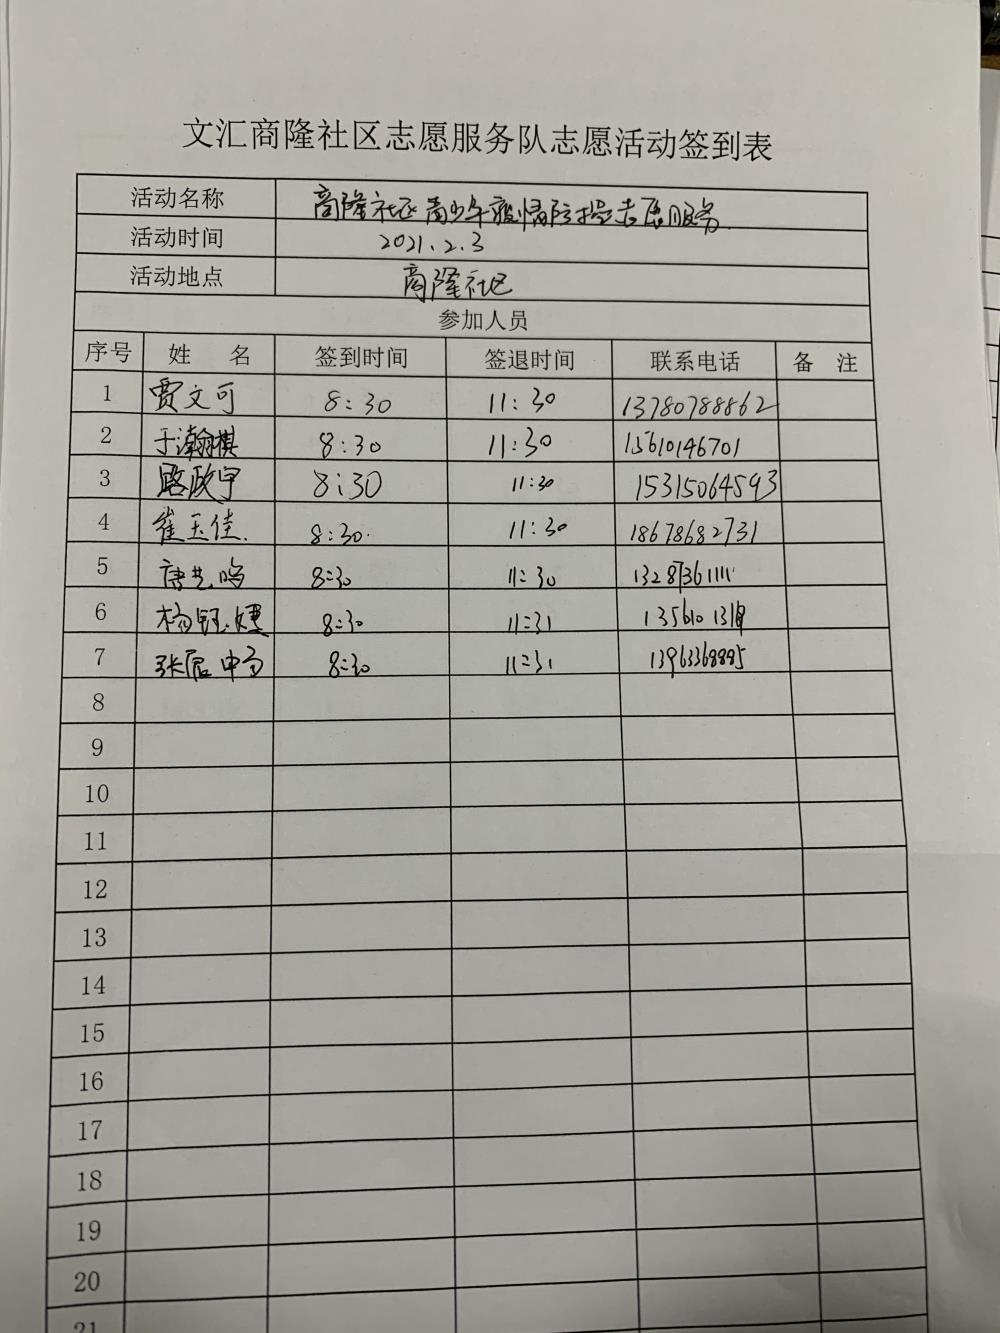 文汇商隆社区志愿服务队志愿活动签到表
活动名称 商隆社区青少年疫情防控志愿服务.
活动时间 2021.2.3
活动地点 商隆社区
参加人员
序号 姓 名 签到时间 签退时间 联系电话 备 注
1 贾文可 8:30 11:30 13780788862
2 于瀚棋 8:30 11:30 15610146701
3 路政宇 8:30 11:30 15315064593
4 崔玉佳. 8:30. 11:30 18678682731
5 唐艺鸣 8:30 11:30 13287361111
6 杨钰婕 8:30 11:31
7 8:30 11:31 13963368885
8
9
10
11
12
13
14
15
16
17
18
19
20
21